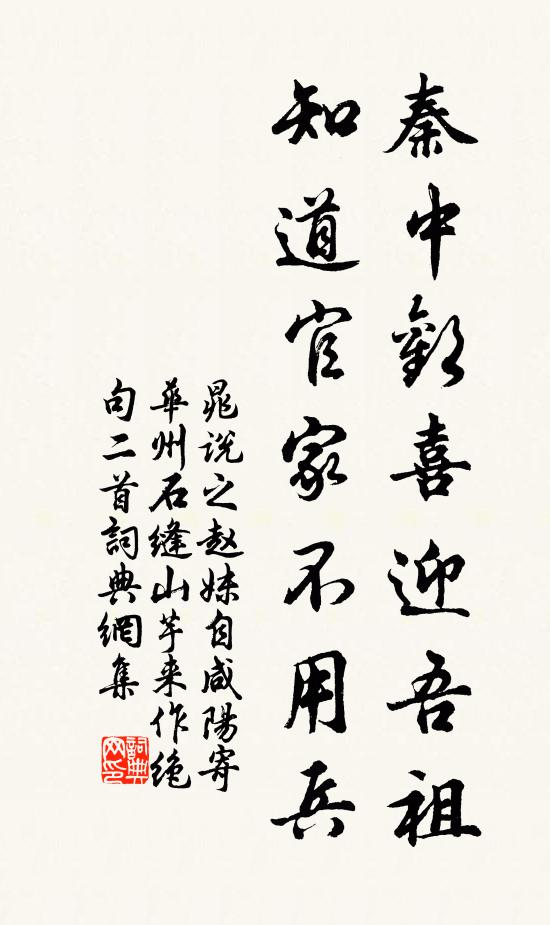 秦中歡喜迎吾祖
知道官家不用兵
晁说之赵妹自咸陽寄
華州石縫山芋来作绝
句二首詞典網集
詞典
网印